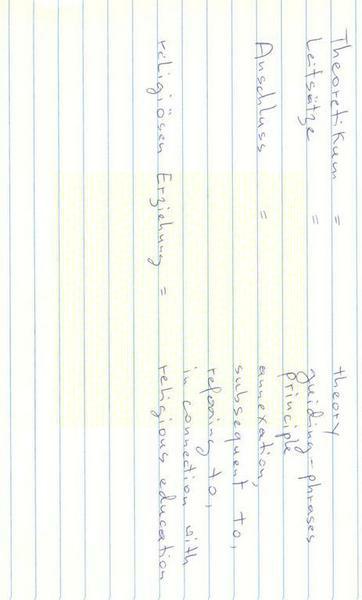 Theoretikum = theory
Leitsätze = guiding-phrases
principle
Anschluss = annexation,
subsequent to,
refering to,
in connection with
religiösen Erziehung = religious education